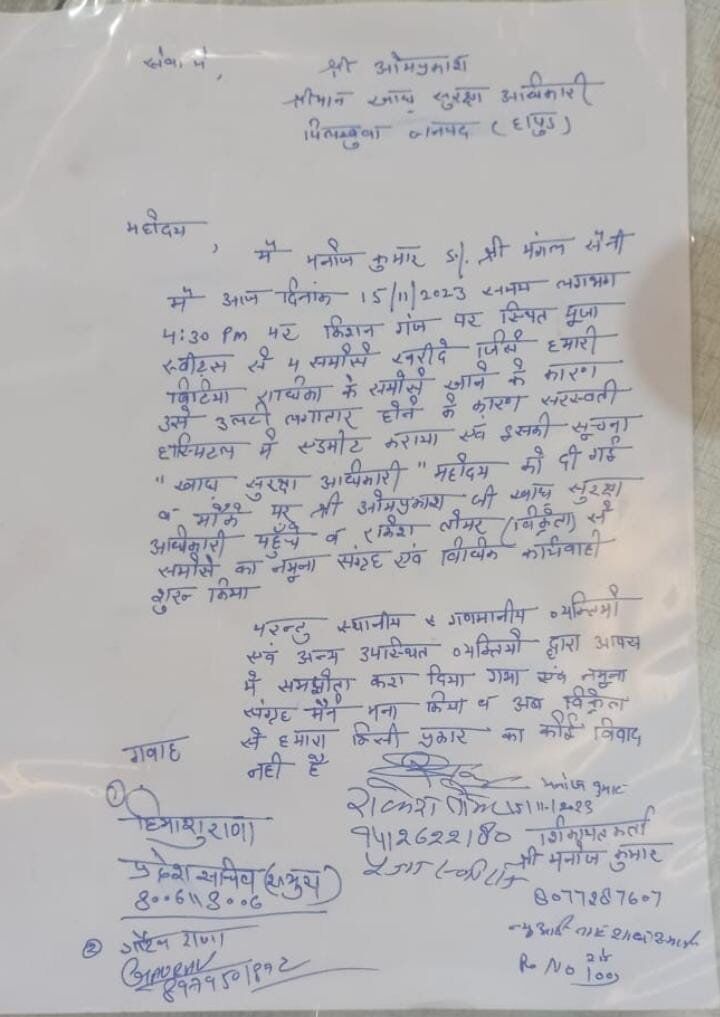 सेवा में,
श्री ओमप्रकाश
श्रीमान खाद्य सुरक्षा अधिकारी
पिलखुवा जनपद (हापुड)
महोदय,
मैं मनोज कुमार S/. श्री मंगल सैनी
मैं आज दिनांक 15/11/2023 समय लगभग
4:30 PM पर किशन गंज पर स्थित पूजा
स्वीट्स से 4 समौसे खरीदे जिसे हमारी
बिटिया राधिका के समौसे खाने के कारण
उसे उलटी लगातार होने के कारण सरस्वती
हास्पिटल में एडमीट कराया एवं इसकी सूचना
"खाद्य सुरक्षा अधिकारी" महोदय को दी गई
व मौके पर श्री ओमप्रकाश जी खाद्य सुरक्षा
अधिकारी पहुँचे व राकेश तोमर (विक्रेता) से
समौसे का नमूना संग्रह एवं विधिक कार्यवाही
शुरू किया
परन्तु स्थानीय व गणमानीय व्यक्तियों
एवं अन्य उपस्थित व्यक्तियों द्वारा आपस
में समझौता करा दिया गया एवं नमूना
संग्रह मैंने मना किया व अब विक्रेता
से हमारा किसी प्रकार का कोई विवाद
नही है
गवाह
मनोज कुमार
① हिमांशु राणा
राकेश तोमर 15/11/2023
9412622180
शिकायत कर्ता
श्री मनोज कुमार
8077287607
प्रदेश सचिव
8006118006
② गौरव राणा
Gaurav
R. No